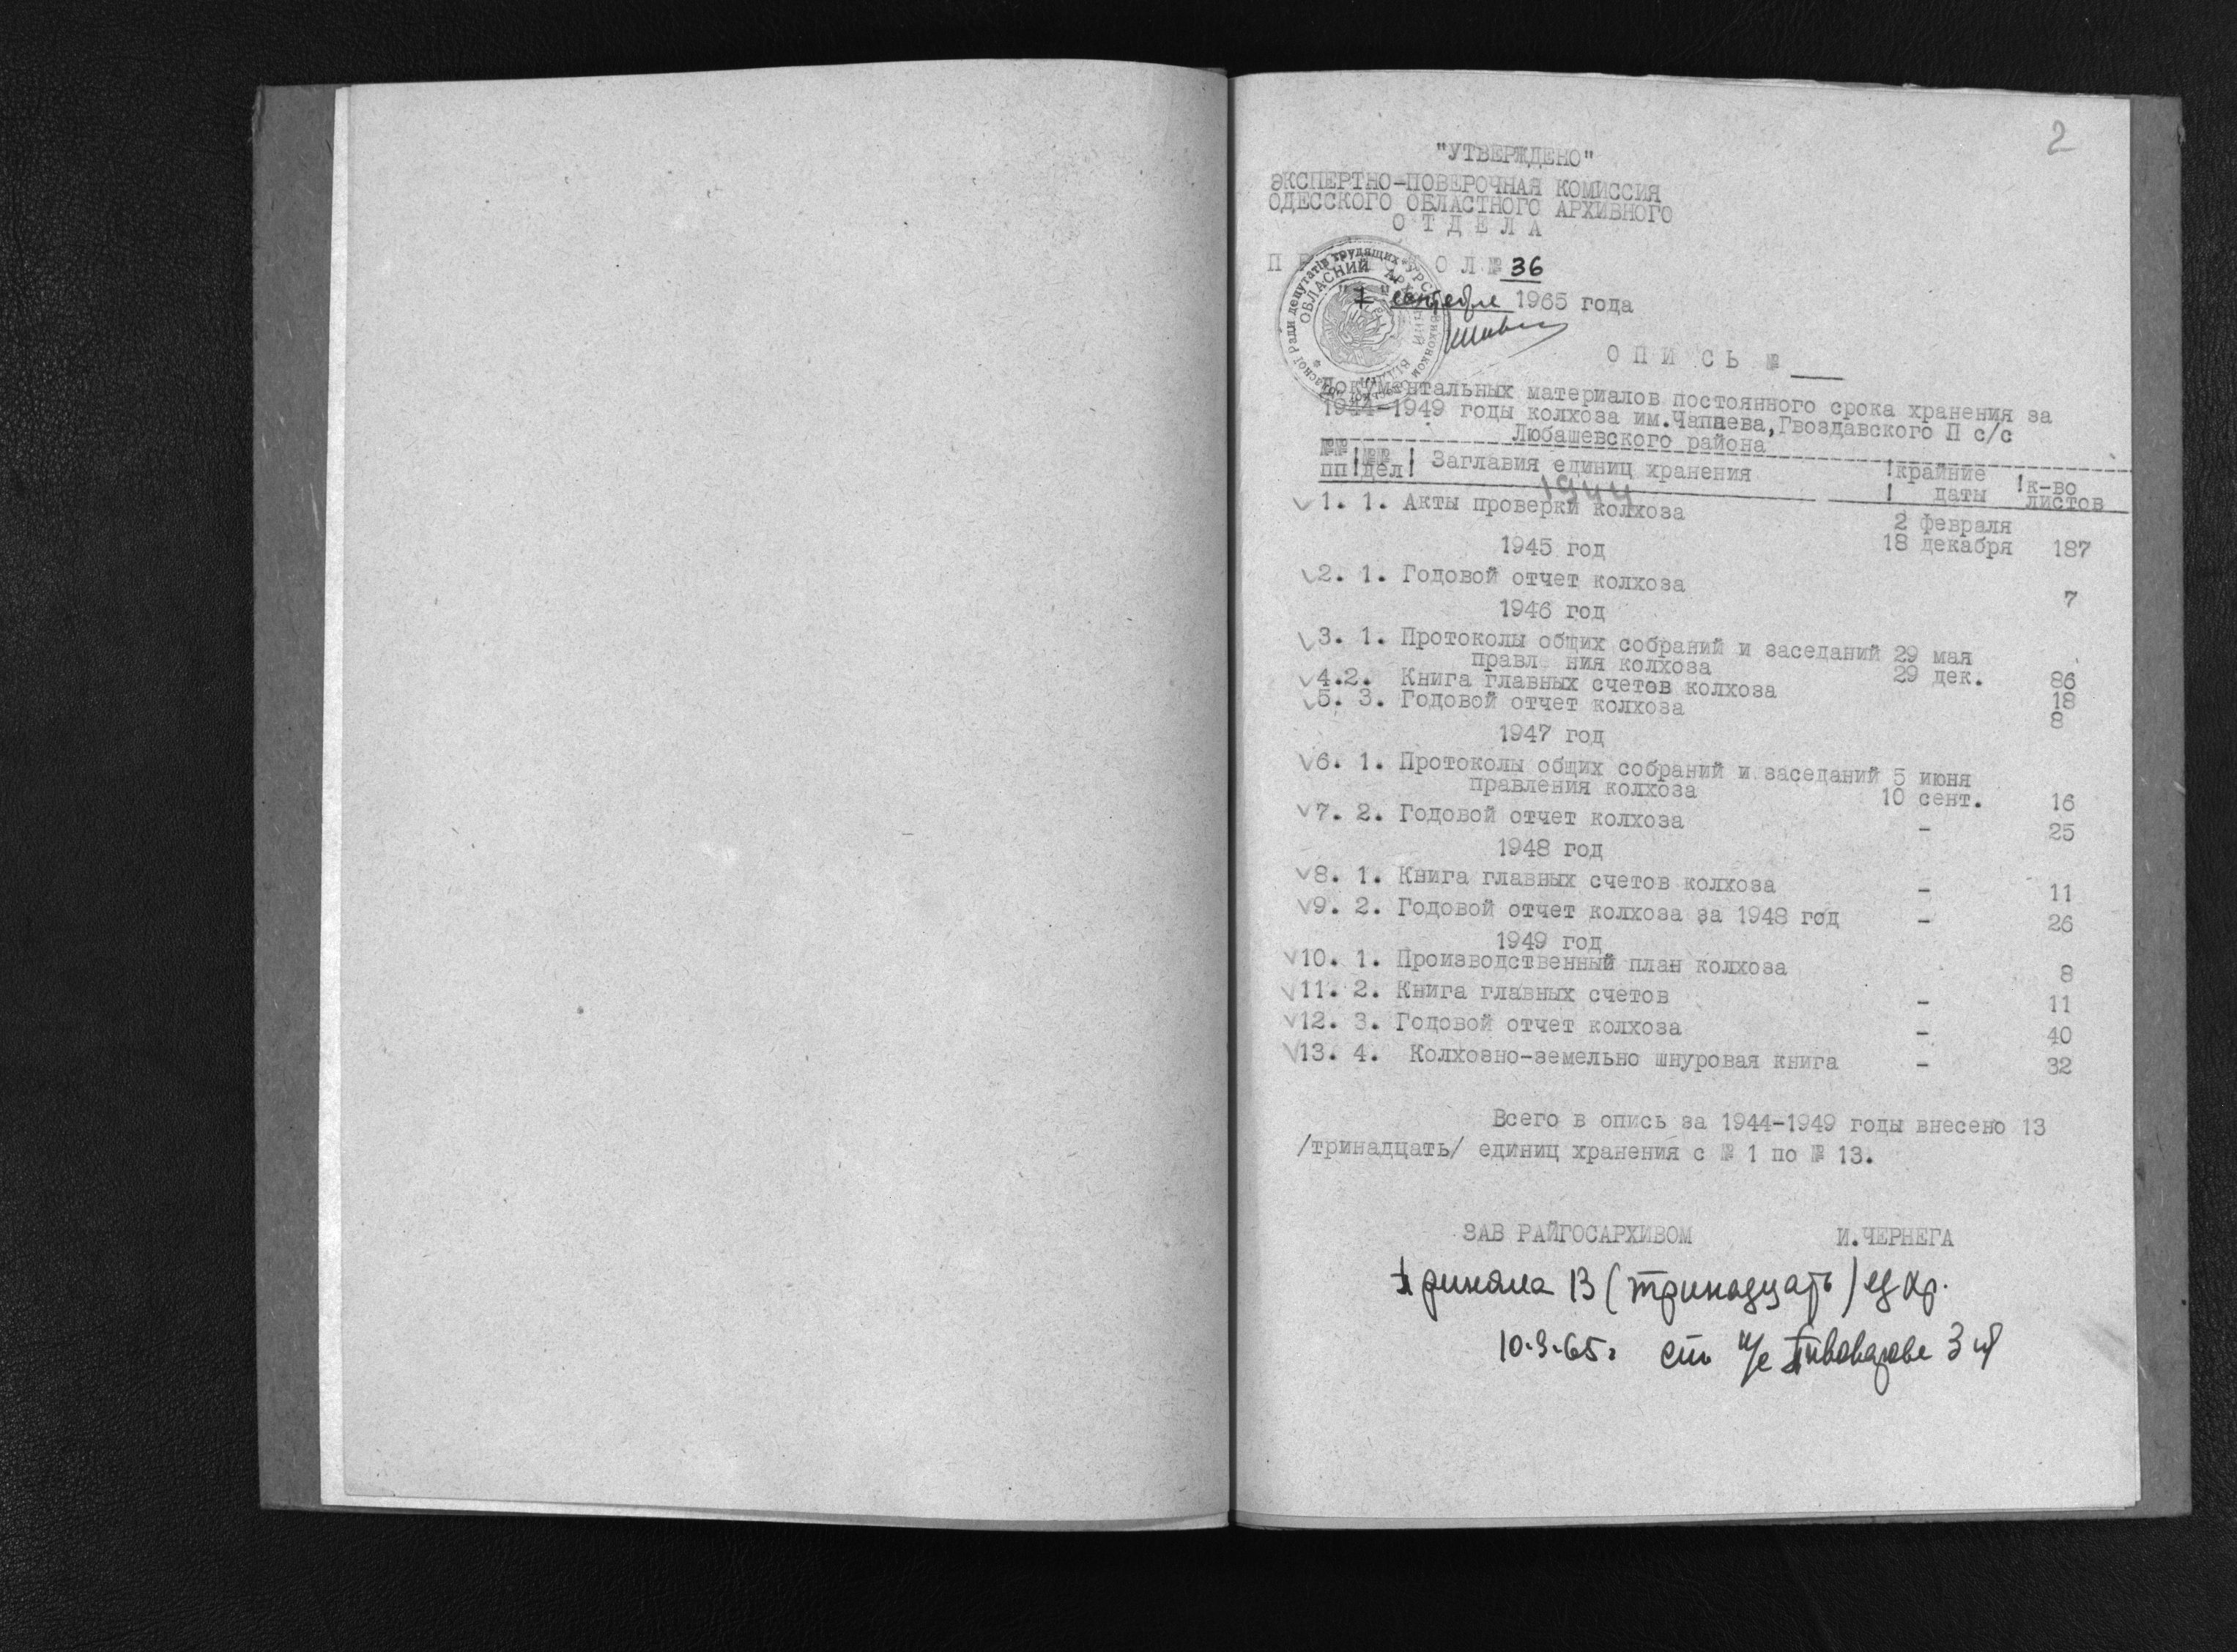 2
"УТВЕРЖДЕНО"
ЭКСПЕРТНО-ПОВЕРОЧНАЯ КОМИССИЯ
ОДЕССКОГО ОБЛАСТНОГО АРХИВНОГО
О Т Д Е Л А
П О Л № 36
сентября 1965 года
ОБЛАСНИЙ АРХІВНИЙ ВІДДІЛ
О П И С Ь № ___
Документальных материалов постоянного срока хранения за
1944-1949 годы колхоза им.Чапаева, Гвоздавского П с/с
Любашевского района
№№ пп ! №№ дел ! Заглавия единиц хранения ! крайние даты ! к-во листов
1944
1. 1. Акты проверки колхоза 2 февраля
18 декабря 187
1945 год
2. 1. Годовой отчет колхоза 7
1946 год
3. 1. Протоколы общих собраний и заседаний 29 мая
правл ния колхоза 29 дек. 86
4.2. Книга главных счетов колхоза 18
5. 3. Годовой отчет колхоза 8
1947 год
6. 1. Протоколы общих собраний и заседаний 5 июня
правления колхоза 10 сент. 16
7. 2. Годовой отчет колхоза - 25
1948 год
8. 1. Книга главных счетов колхоза - 11
9. 2. Годовой отчет колхоза за 1948 год - 26
1949 год
10. 1. Производственный план колхоза 8
11. 2. Книга главных счетов - 11
12. 3. Годовой отчет колхоза - 40
13. 4. Колхозно-земельно шнуровая книга - 32
Всего в опись за 1944-1949 годы внесено 13
/тринадцать/ единиц хранения с № 1 по № 13.
ЗАВ РАЙГОСАРХИВОМ И.ЧЕРНЕГА
Приняла 13 (тринадцать) ед хр.
10.9.65г ст н/с Пивоварова